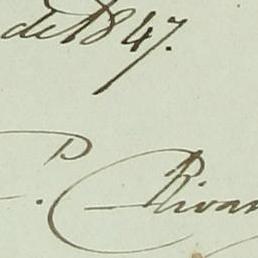 de 1847.
P. Rivas